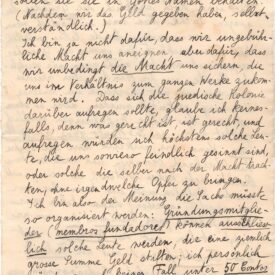 sollen sie sie in Gottes Namen behalten
(Nachdem wir das Geld gegeben haben, selbst
verständlich.)
Ich bin ja nicht dafür, dass wir ungebühr-
liche Macht uns aneignen aber dafür, dass
wir unbedingt die Macht uns sichern, die
uns im Verhältnis zum ganzen Werke zukom-
men wird. Dass sich die juedische Kolonie
darüber aufregen sollte, glaube ich keines-
falls, denn was gerecht ist ist gerecht, und
aufregen würden sich höchstens solche Leu-
te, die uns sowieso feindlich gesinnt sind,
oder solche die selber nach der Macht trach-
ten, ohne irgendwelche Opfer zu bringen.
Ich bin also der Meinung die Sache müsste
so organisiert werden: Gründungsmitglie-
der (membros fundadores) können ausschliess-
lich solche Leute werden, die eine ziemlich
grosse Summe Geld stiften, ich persönlich
keinen Fall unter 50 Contos